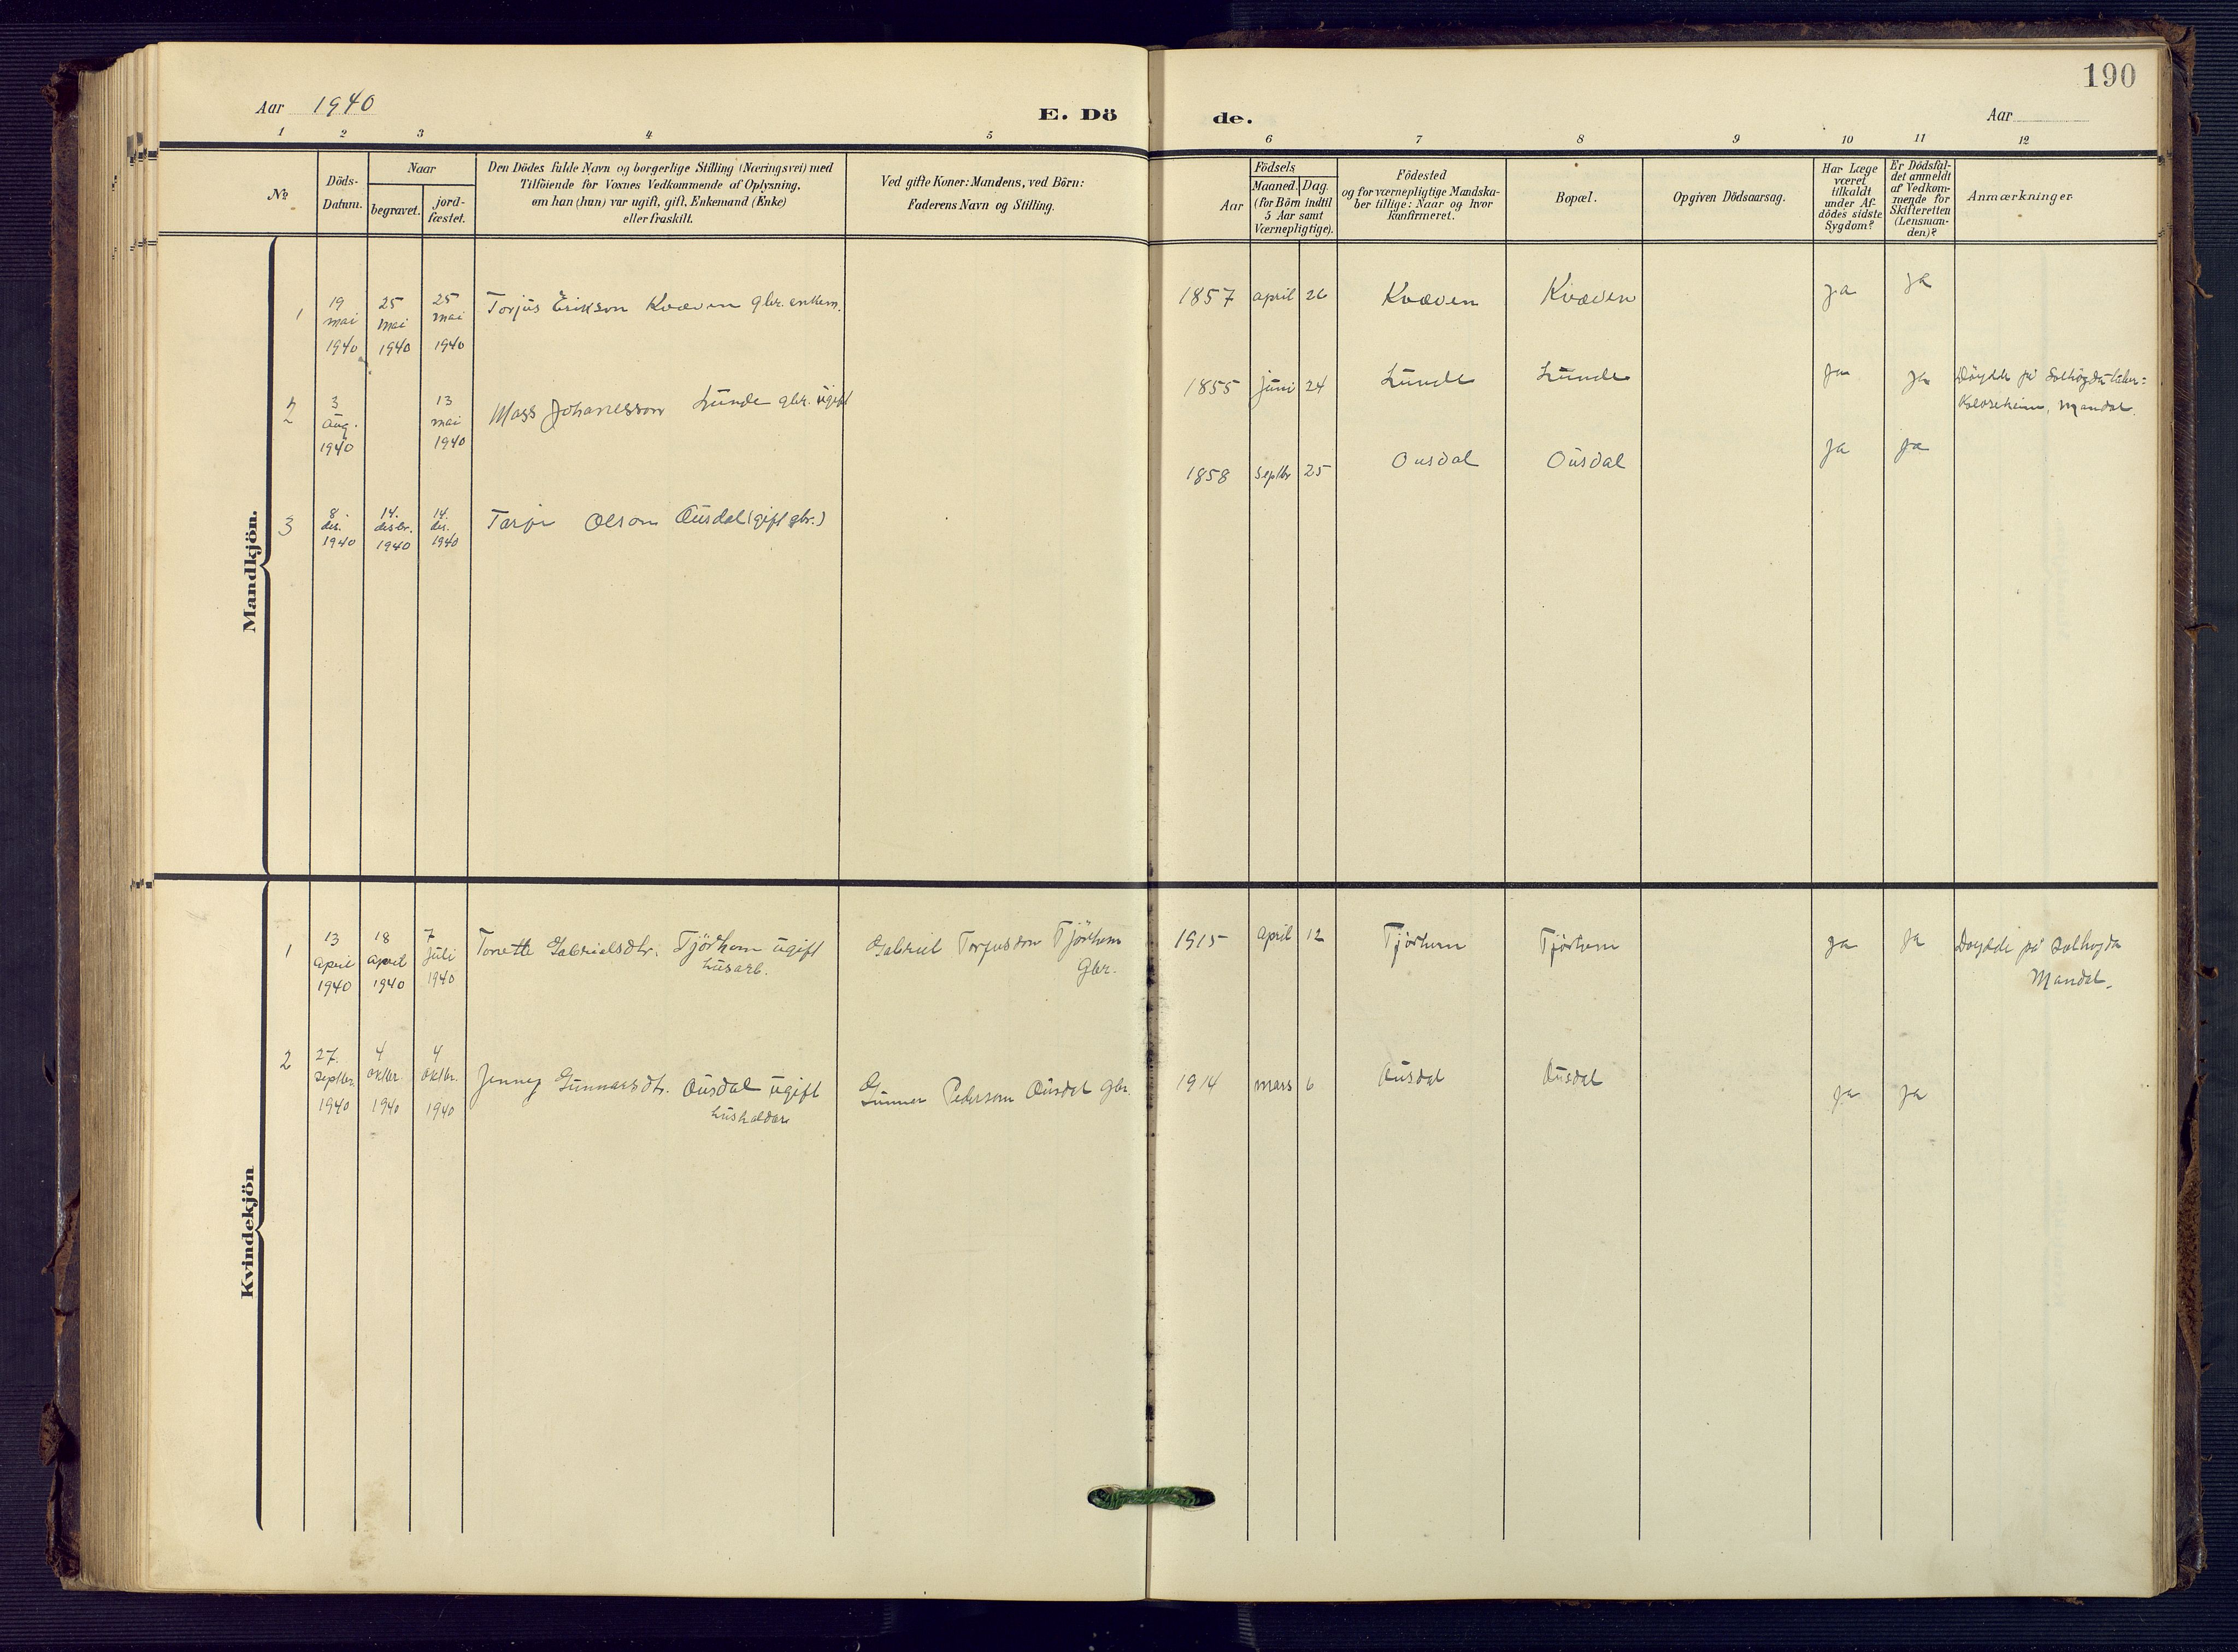 190
Aar 1940
E. Dö
de.
Aar
1 2 3 4 5 6 7 8 9 10 11 12
№
Döds-
Datum.
Naar
begravet.
jord-
fæstet.
Den Dödes fulde Navn og borgerlige Stilling (Næringsvei) med
Tilföiende for Voxnes Vedkommende af Oplysning,
om han (hun) var ugift, gift, Enkemand (Enke)
eller fraskilt.
Ved gifte Koner: Mandens, ved Börn:
Faderens Navn og Stilling.
Födsels
Aar
Maaned. Dag.
(for Börn indtil
5 Aar samt
Værnepligtige).
Födested
og for værnepligtige Mandska-
ber tillige: Naar og hvor
Konfirmeret.
Bopæl.
Opgiven Dödsaarsag.
Har Læge
været
tilkaldt
under Af-
dödes sidste
Sygdom?
Er Dödsfal-
det anmeldt
af Vedkom-
mende for
Skifteretten
(Lensman-
den)?
Anmærkninger.
Mandkjön.
1 19 mai 1940 25 mai 1940 25 mai 1940 Torjus Erikson Kvæven gbr. enkem. 1857 april 26 Kvæven Kvæven ja ja
2 3 aug. 1940 13 mai 1940 Mass Johanesson Lunde gbr. ugift 1855 juni 24 Lunde Lunde ja ja Döydde på Solhögda
Mandal.
3 8. des. 1940 14. desbr. 1940 14. des. 1940 Olson Ousdal (gift gbr.) 1858 septbr 25 Ousdal Ousdal ja ja
Kvindekjön
1 13 april 1940 18 april 1940 7 juli 1940 Tonette Gabrielsdtr. Tjörhom ugift
husarb.
Gabriel Torjusson Tjörhom
Gbr.
1915 april 12 Tjörhom Tjörhom ja ja Döydde på Solhogda
Mandal.
2 27. septbr. 1940 4 oktbr. 1940 4 oktbr. 1940 Jenney Gunnarsdtr. Ousdal ugift
hushaldar
Gunnar Pederson Ousdal Gbr. 1914 mars 6 Ousdal Ousdal ja ja